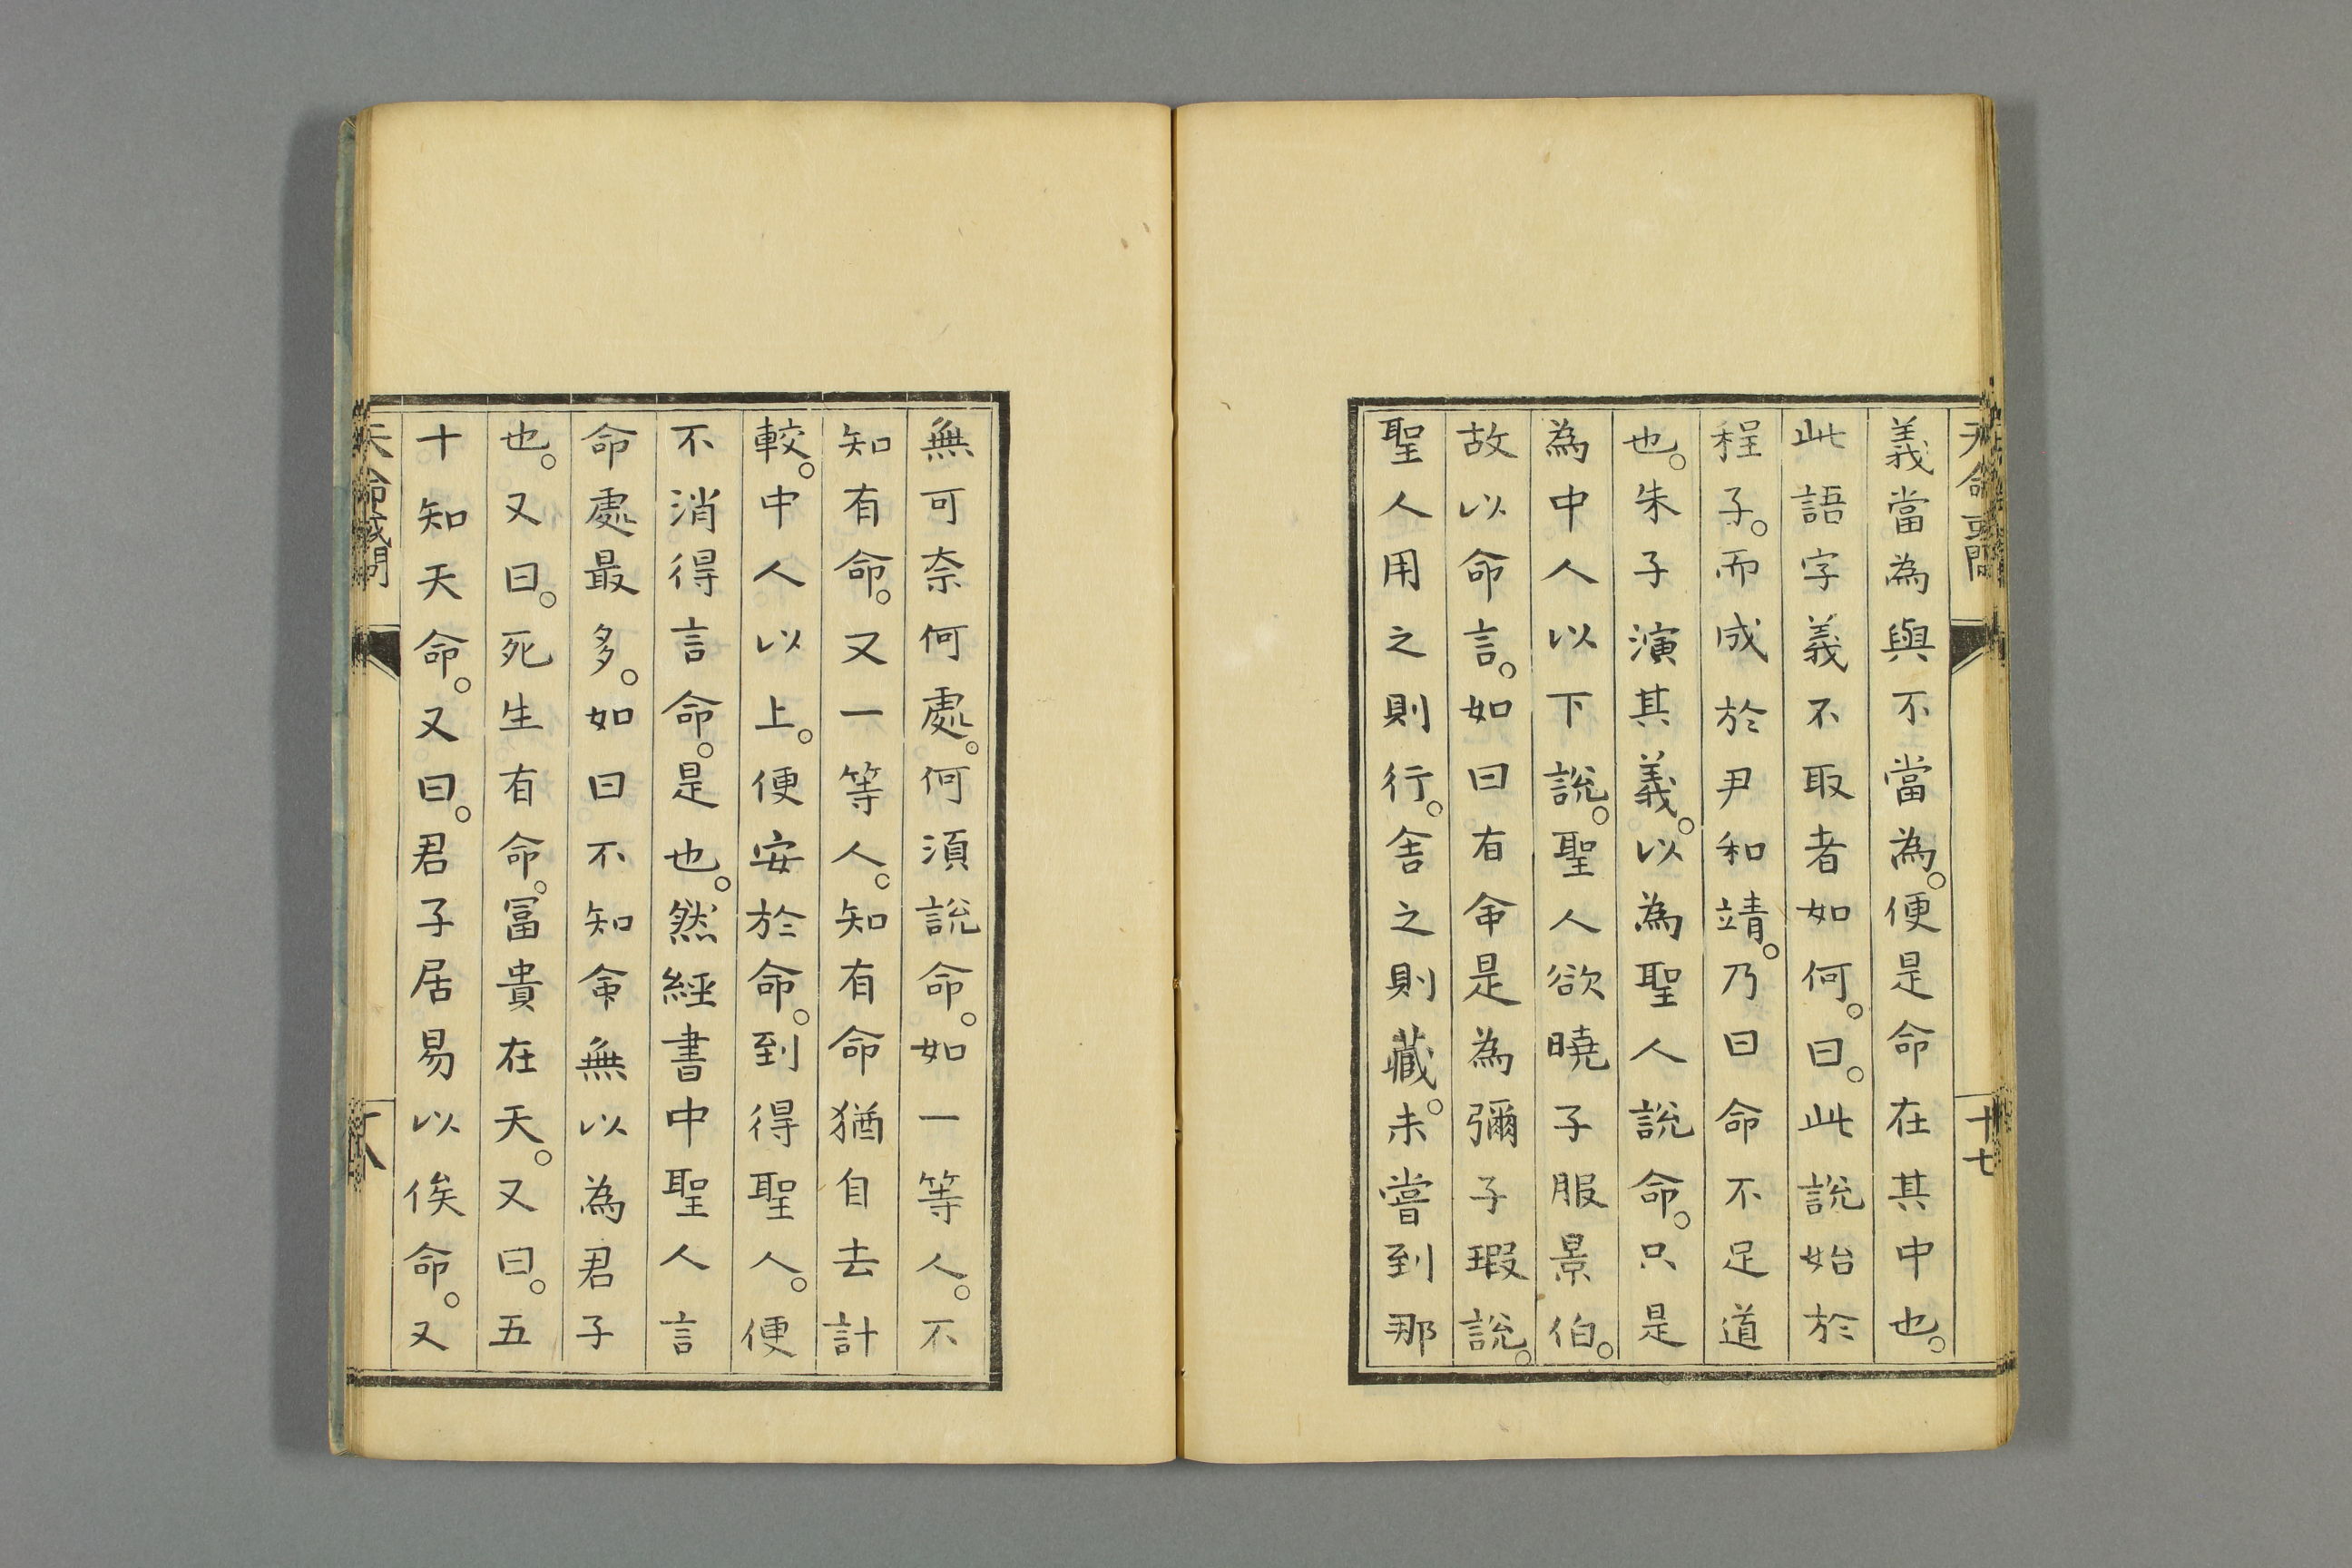 天命或問
十七
義當為與不當為。便是命在其中也。
此語字義不取者如何。曰。此說始於
程子。而成於尹和靖。乃曰命不足道
也。朱子演其義。以為聖人說命。只是
為中人以下說。聖人欲曉子服景伯。
故以命言。如曰有命是為彌子瑕說。
聖人用之則行。舍之則藏。未嘗到那
無可奈何處。何須說命。如一等人。不
知有命。又一等人。知有命猶自去計
較。中人以上。便安於命。到得聖人。便
不消得言命。是也。然經書中聖人言
命處最多。如曰不知命無以為君子
也。又曰。死生有命。冨貴在天。又曰。五
十知天命。又曰。君子居易以俟命。又
天命或問
十八